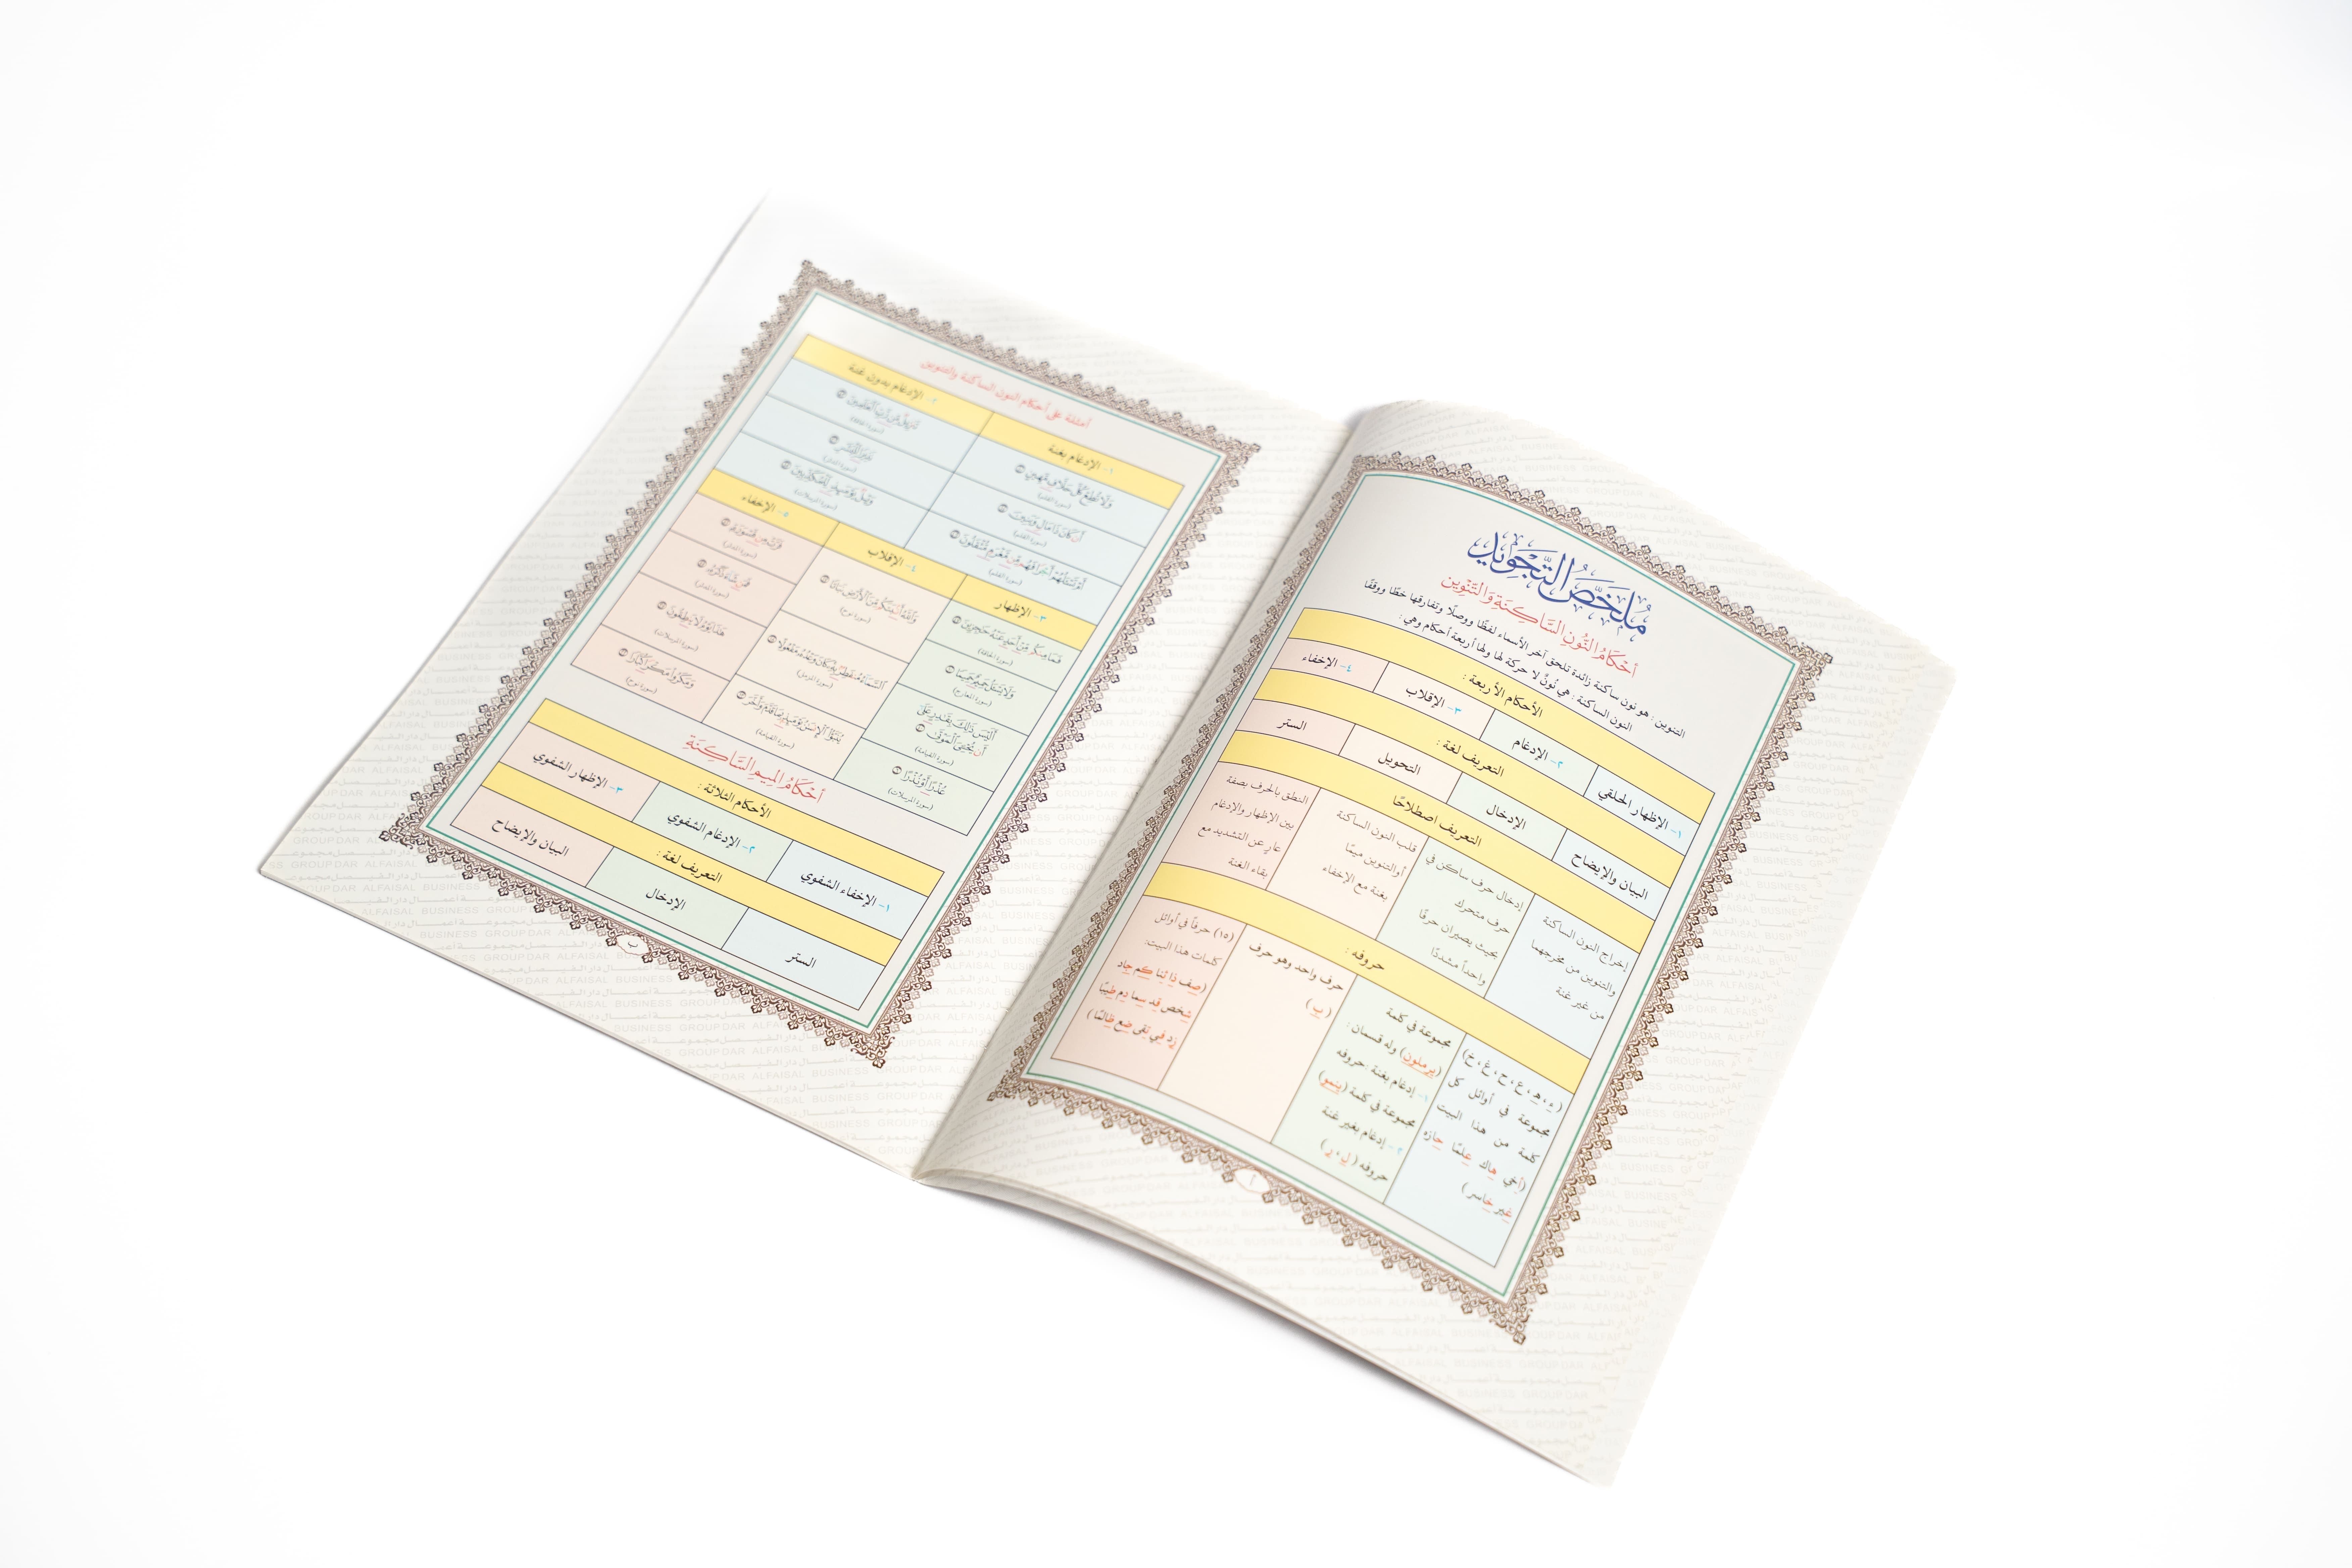 مُلَخَّصُ التَّجْوِيد
أَحْكَامُ النُّونِ السَّاكِنَةِ وَالتَّنْوِين
التنوين : هو نون ساكنة زائدة تلحق آخر الأسماء لفظًا ووصلًا وتفارقها خطًا ووقفًا
النون الساكنة : هي نُونٌ لا حركة لها ولها أربعة أحكام وهي :
الأحكام الأربعة :
١- الإظهار الحلقي
٢- الإدغام
٣- الإقلاب
٤- الإخفاء
التعريف لغة :
البيان والإيضاح
الإدخال
التحويل
الستر
التعريف اصطلاحًا
إخراج النون الساكنة
والتنوين من مخرجهما
من غير غنة
إدخال حرف ساكن في
حرف متحرك
بحيث يصيران حرفًا
واحداً مشددًا
قلب النون الساكنة
أوالتنوين ميمًا
بغنة مع الإخفاء
النطق بالحرف بصفة
بين الإظهار والإدغام
عارٍ عن التشديد مع
بقاء الغنة
حروفه :
(ء ، هـ ، ع ، ح ، غ ، خ)
مجموعة في أوائل كل
كلمة من هذا البيت
(أخي هاك علمًا حازه
غير خاسر)
مجموعة في كلمة
(يرملون) وله قسمان :
١- إدغام بغنة حروفه
مجموعة في كلمة (ينمو)
٢- إدغام بغير غنة
حروفه (ل ، ر)
حرف واحد وهو حرف
( ب )
(١٥) حرفاً في أوائل
كلمات هذا البيت:
(صِف ذا ثنا كم جاد
شخص قد سما دم طيبًا
زد في تقى ضع ظالمًا)
أ
أمثلة على أحكام النون الساكنة والتنوين
١- الإدغام بغنة
٢- الإدغام بدون غنة
وَلَا تُطِعْ كُلَّ حَلَّافٍ مَّهِينٍ
(سورة القلم)
أَن كَانَ ذَا مَالٍ وَبَنِينَ
(سورة القلم)
أَمْ تَسْـَٔلُهُمْ أَجْرًا فَهُم مِّن مَّغْرَمٍ مُّثْقَلُونَ
(سورة القلم)
تَنزِيلٌ مِّن رَّبِّ الْعَالَمِينَ
(سورة الحاقة)
وَيْلٌ يَوْمَئِذٍ لِّلْمُكَذِّبِينَ
(سورة المرسلات)
٣- الإظهار
٤- الإقلاب
٥- الإخفاء
فَمَا مِنكُم مِّنْ أَحَدٍ عَنْهُ حَاجِزِينَ
(سورة الحاقة)
وَلَا يَسْـَٔلُ حَمِيمٌ حَمِيمًا
(سورة المعارج)
أَلَيْسَ ذَٰلِكَ بِقَادِرٍ عَلَىٰ
أَن يُحْـِۧيَ الْمَوْتَىٰ
(سورة القيامة)
عُذْرًا أَوْ نُذْرًا
(سورة المرسلات)
وَاللَّهُ أَنۢبَتَكُم مِّنَ الْأَرْضِ نَبَاتًا
(سورة نوح)
السَّمَاءُ مُنفَطِرٌۢ بِهِ كَانَ وَعْدُهُ مَفْعُولًا
(سورة المزمل)
يُنَبَّؤُا الْإِنسَانُ يَوْمَئِذٍۢ بِمَا قَدَّمَ وَأَخَّرَ
(سورة القيامة)
فَرَّتْ مِن قَسْوَرَةٍ
(سورة المدثر)
فَمَن شَاءَ ذَكَرَهُ
(سورة المدثر)
هَٰذَا يَوْمُ لَا يَنطِقُونَ
(سورة المرسلات)
وَمَكَرُوا مَكْرًا كُبَّارًا
(سورة نوح)
أَحْكَامُ المِيمِ السَّاكِنَةِ
الأحكام الثلاثة :
١- الإخفاء الشفوي
٢- الإدغام الشفوي
٣- الإظهار الشفوي
التعريف لغة :
الستر
الإدخال
البيان والإيضاح
ب
DAR ALFAISAL BUSINESS GROUP